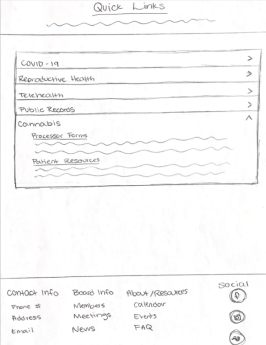 Quick Links
COVID-19 >
Reproductive Health >
Telehealth >
Public Records >
Cannabis ^
Processor Forms
Patient Resources
Contact Info
Phone #
Address
Email
Board Info
Members
Meetings
News
About/Resources
Calendar
Events
FAQ
Social